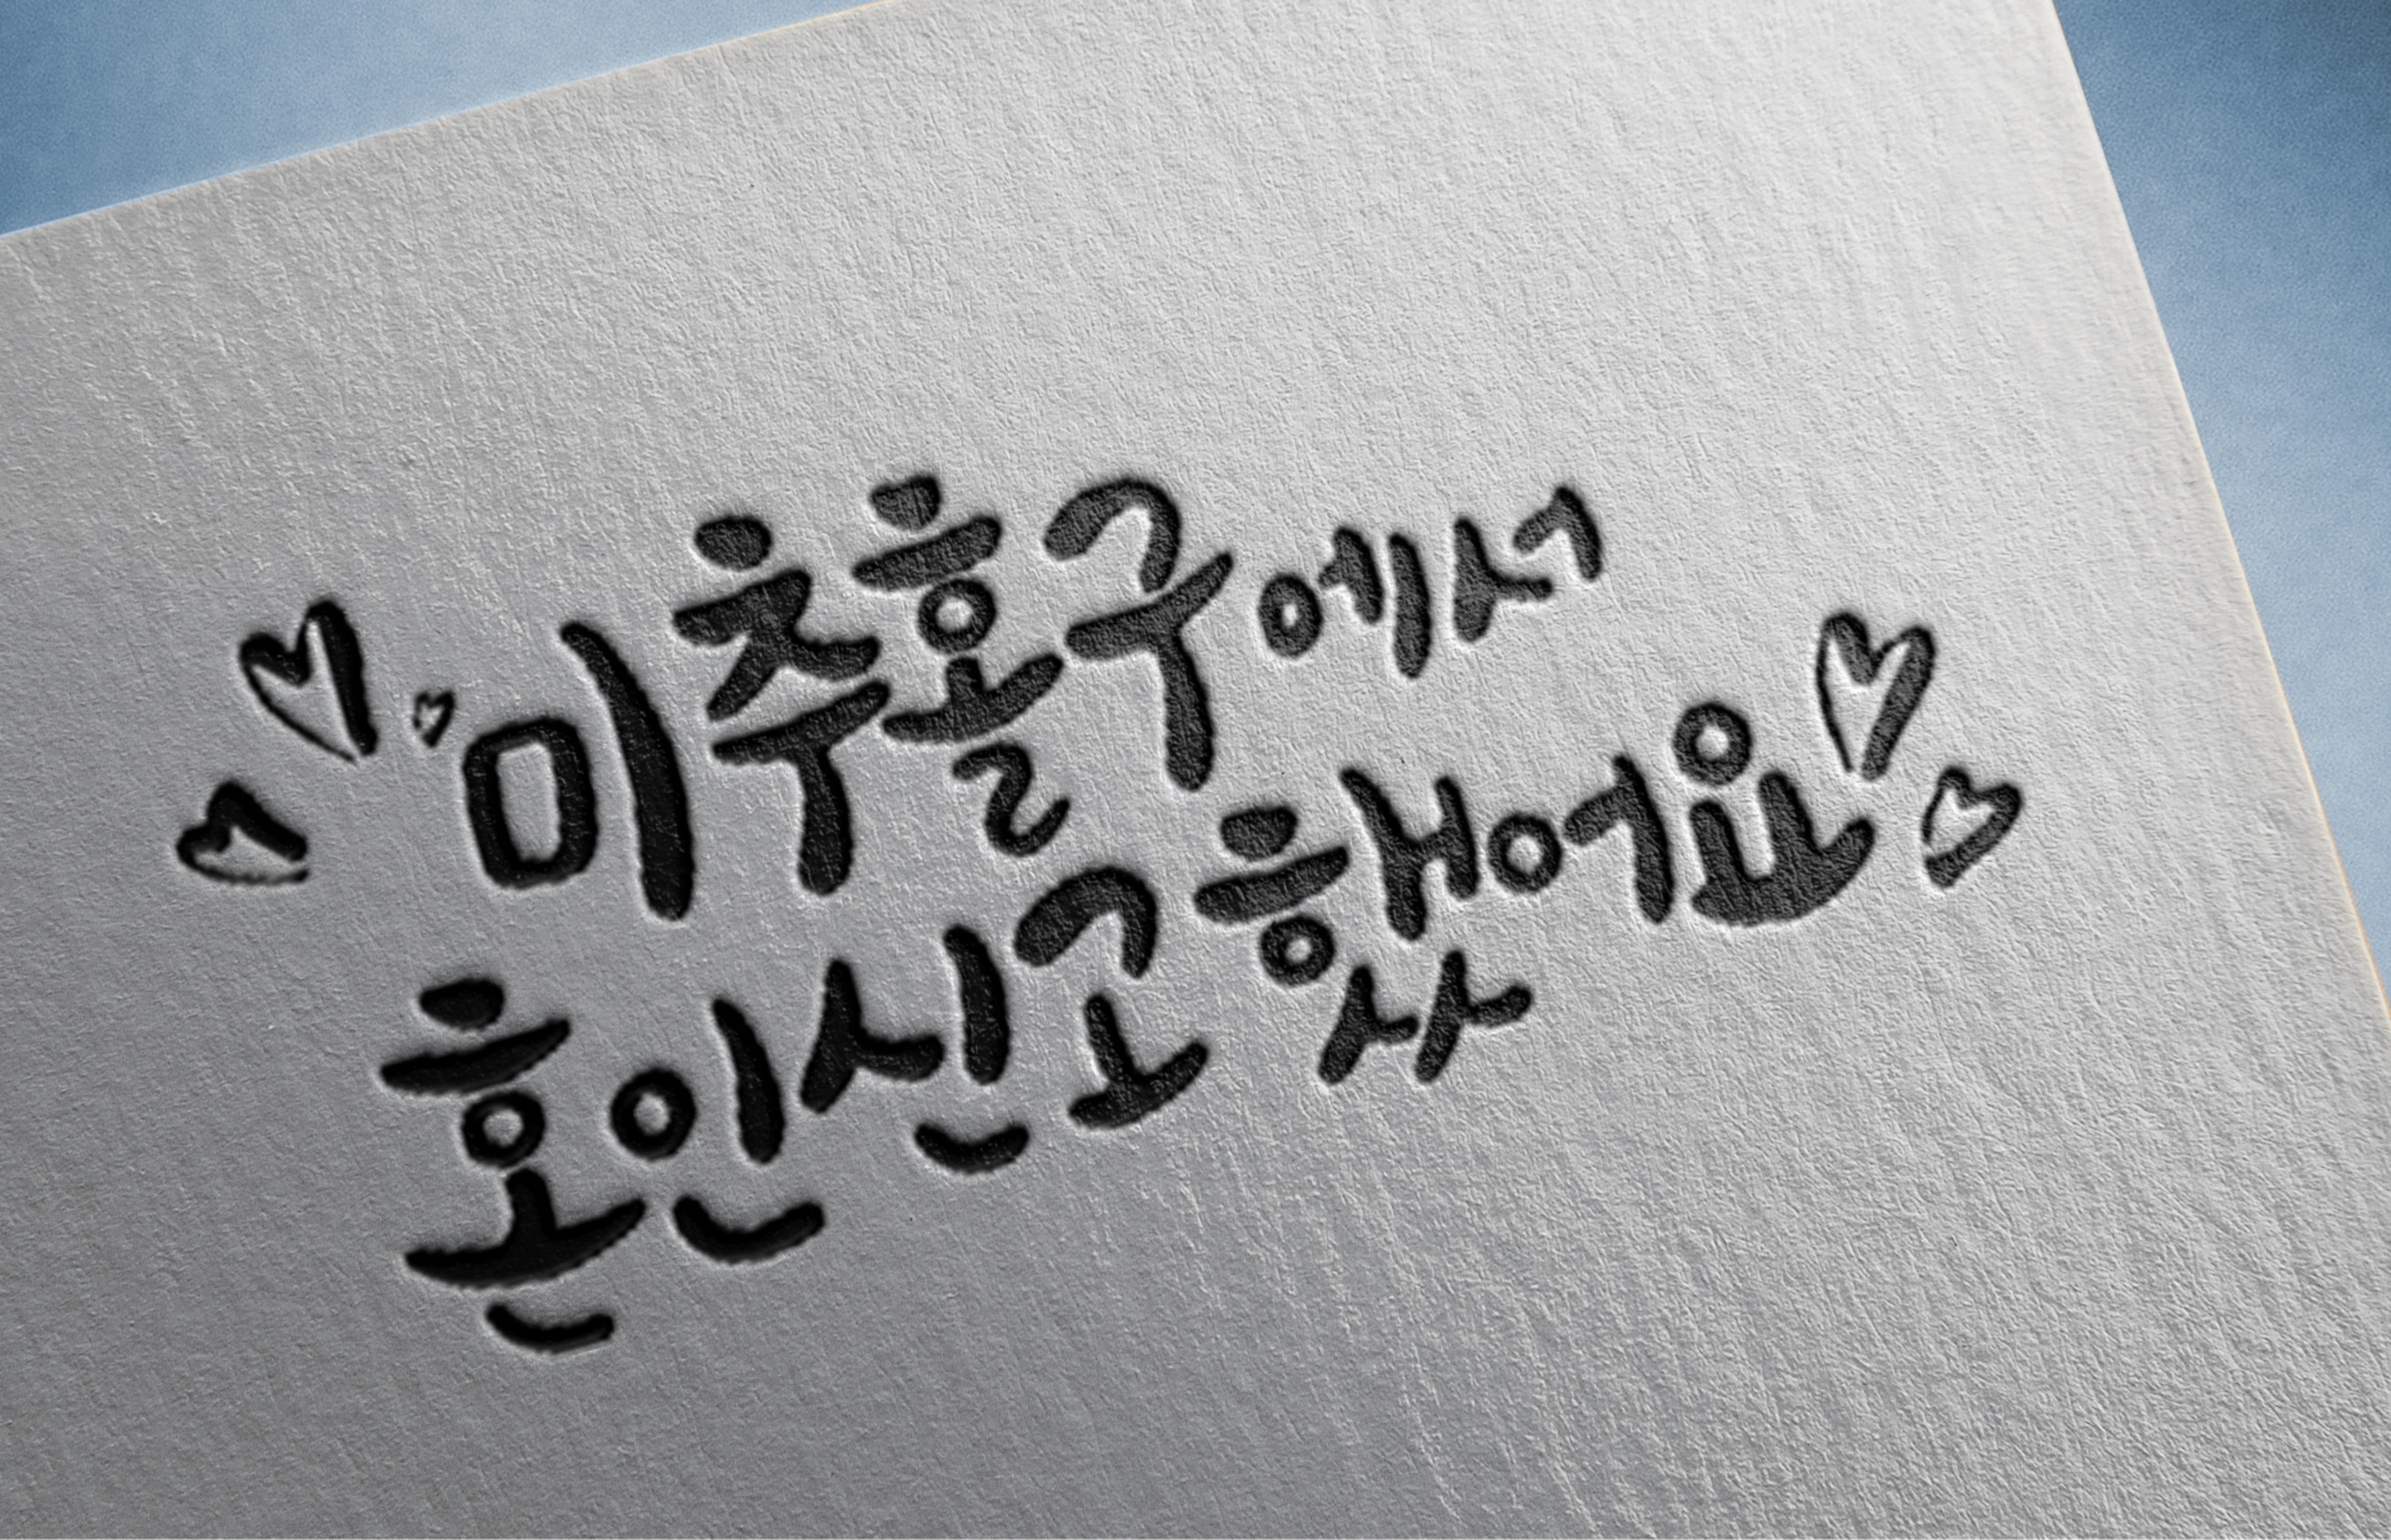 미추홀구에서
혼인신고했어요